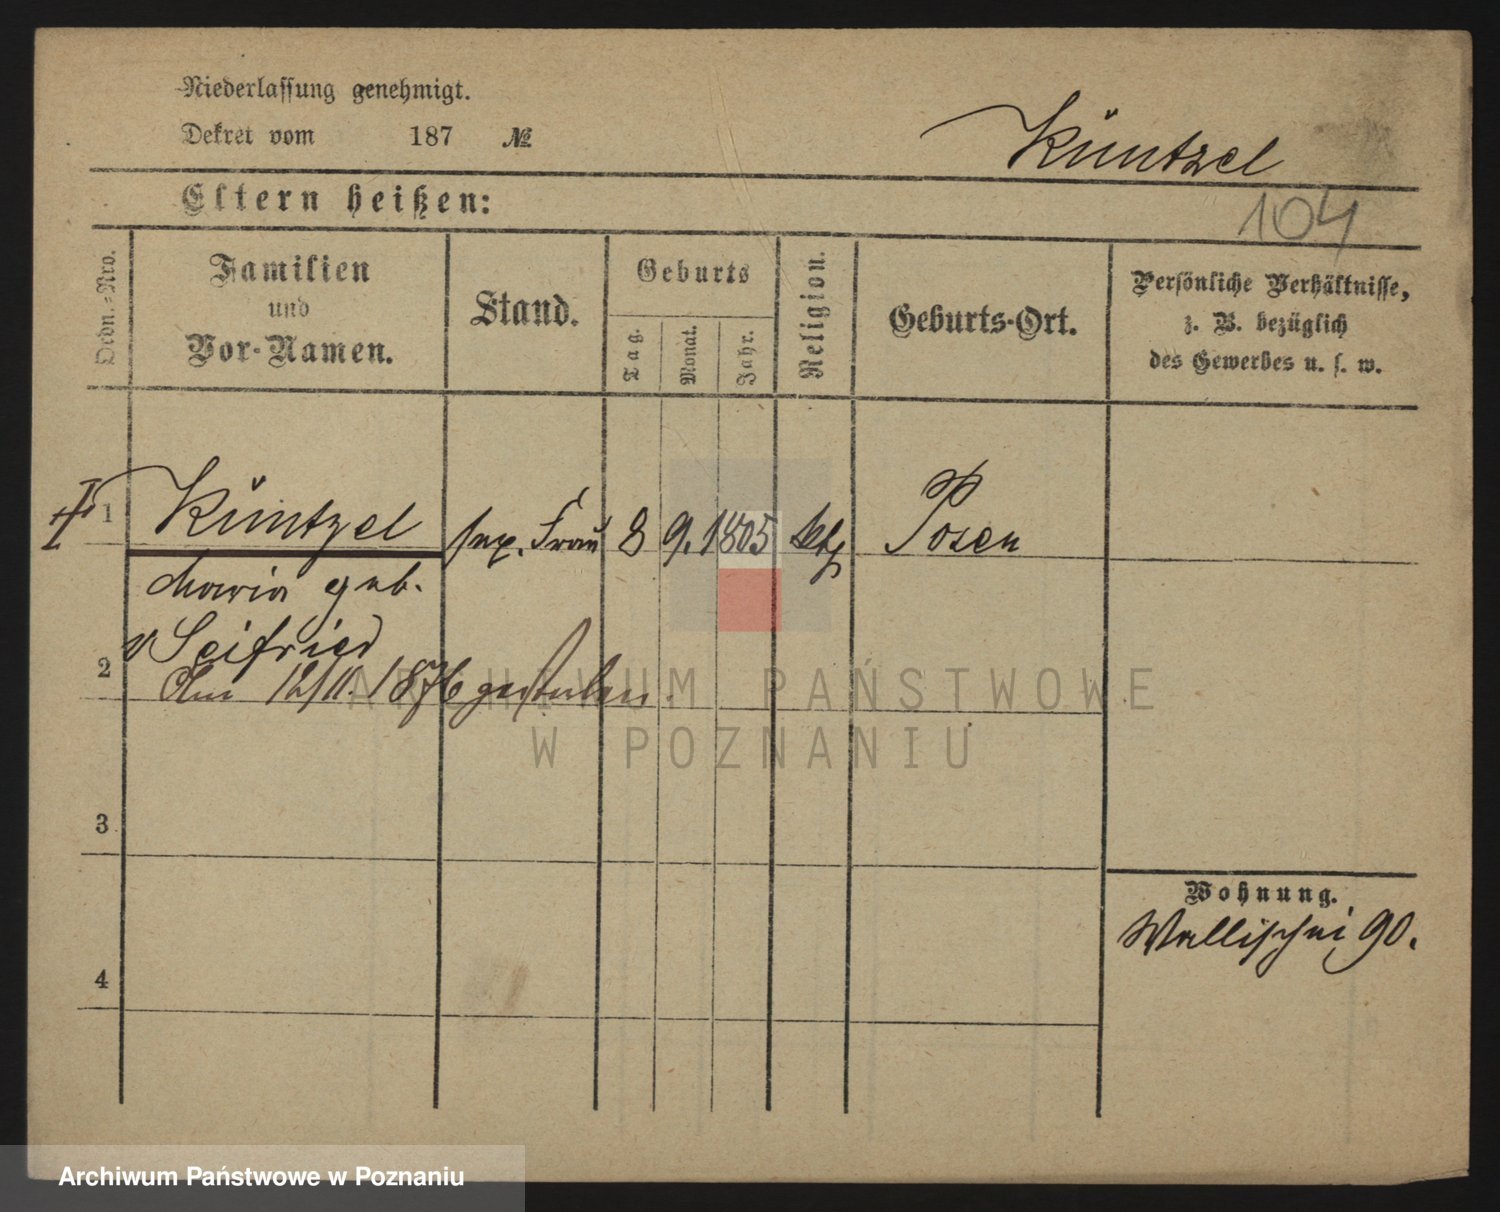 Niederlassung genehmigt.
Dekret vom 187 №
Küntzel
Eltern heißen:
104
Ordn.-Nro.
Familien
und
Vor-Namen.
Stand.
Geburts
Tag.
Monat.
Jahr.
Religion.
Geburts-Ort.
Persönliche Verhältnisse,
z. B. bezüglich
des Gewerbes u. s. w.
1 Küntzel sep. Frau 8 9. 1805 Posen
Maria geb.
v Seifried
2 Am 12/11. 1876 gestorben.
ARCHIWUM PAŃSTWOWE
W POZNANIU
3
Wohnung.
Wallischei 90.
4
Archiwum Państwowe w Poznaniu